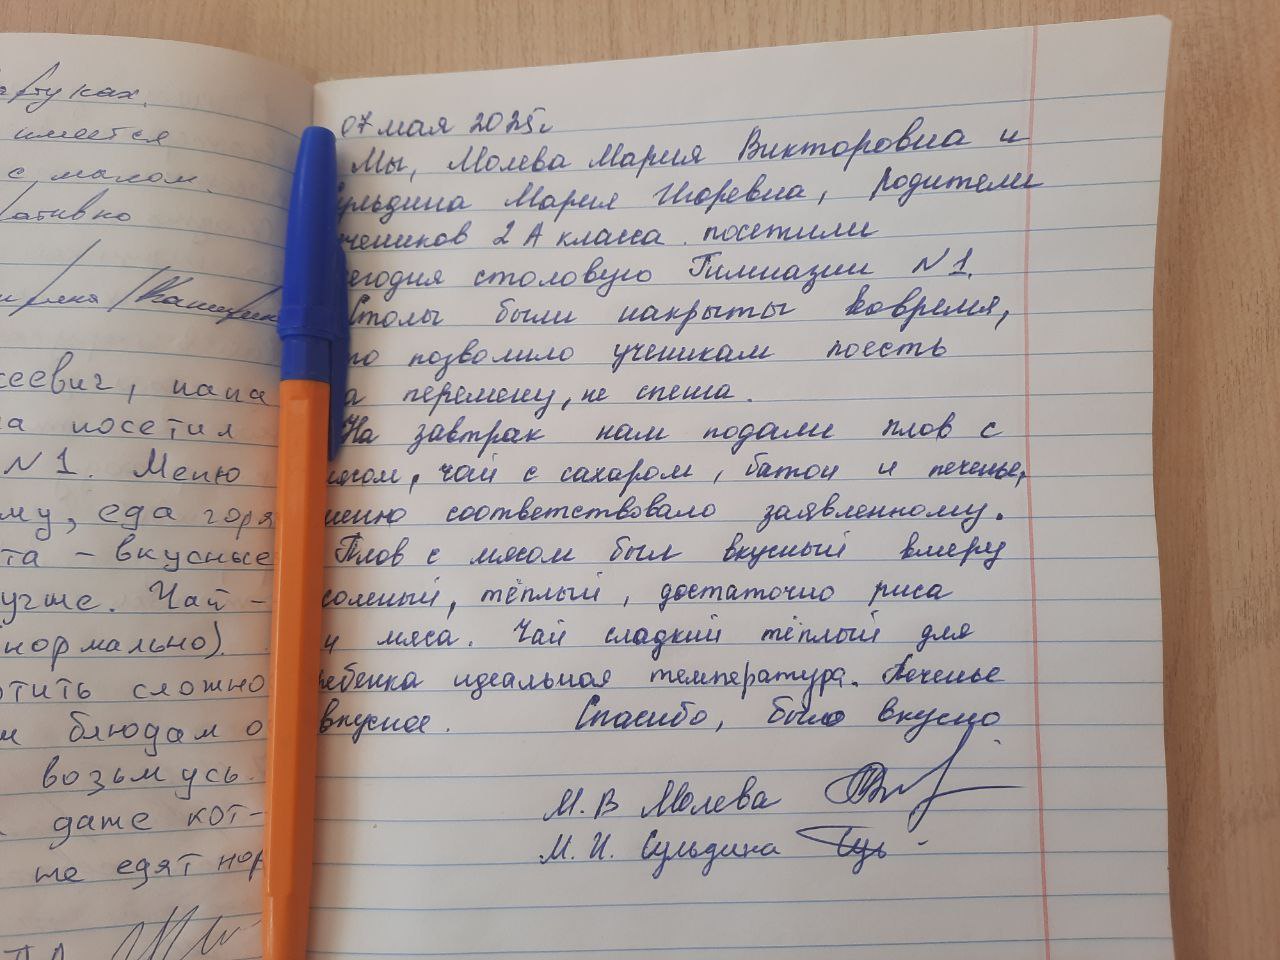 артуках.
имеется
с маком.
ативно
сеевич, папа
на посетил
N1. Меню
ому, еда горя
та - вкусные
лучше. Чай -
нормально).
отить сложно
м блюдам о
возьмусь.
даже кот-
же едят нор
07 мая 2025г
Мы, Молева Мария Викторовна и
Сульдина Мария Игоревна, родители
учеников 2 А класса посетили
сегодня столовую Гимназии N1.
Столы были накрыты вовремя,
что позволило ученикам поесть
на перемену, не спеша.
На завтрак нам подали плов с
мясом, чай с сахаром, батон и печенье,
меню соответствовало заявленному.
Плов с мясом был вкусный вмеру
соленый, тёплый, достаточно риса
и мяса. Чай сладкий тёплый для
ребенка идеальная температура. Печенье
вкусное. Спасибо, было вкусно
М.В Молева
М.И. Сульдина